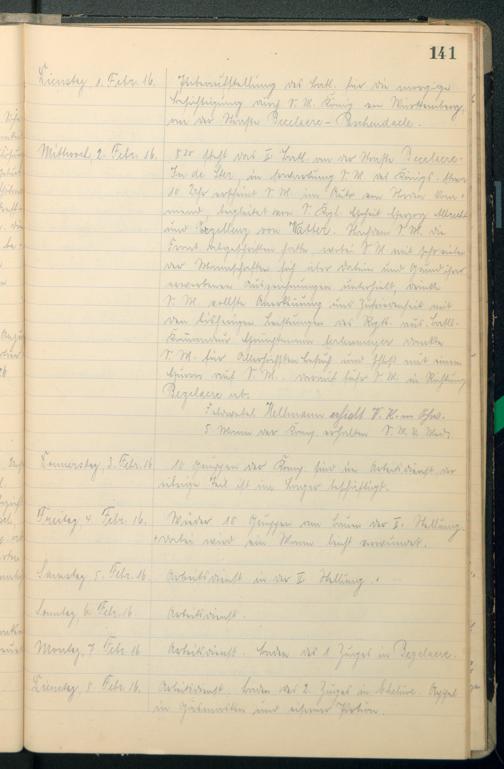 141
Dienstag 1. Febr. 16. des Batl. für die morgige
Besichtigung durch S. M. König von Württemberg
an der Straße Becelaere - Paschendaele.
Mittwoch, 2. Febr. 16. steht das I. Batl. an der Straße Becelaere-
in Erwartung S. M. des Königs.
10 Uhr erscheint S. M. im Auto von
begleitet von S. Kgl. Hoheit Herzog Albrecht
und Exzellenz von Watter. Nachdem S. M. die
Front abgeschritten hatte, wobei S. M. mit sehr vielen
der Mannschaften sich über Datum und Grund ihrer
erworbenen Auszeichnungen unterhielt,
S. M. vollste Anerkennung und Zufriedenheit mit
den bisherigen Leistungen des Regts. aus. Batls.-
Kommandeur Hauptmann dankte
S. M. für Allerhöchsten Besuch und schloß mit einem
Hurra auf S. M. darauf fuhr S. M. in Richtung
Becelaere ab.
Feldwebel Hellmann erhielt
5 Mann der Komp. erhalten
Donnerstag, 3. Febr. 16 10 Gruppen der Komp. sind im Arbeitsdienst der
übrige Teil ist im Lager beschäftigt.
Freitag 4. Febr. 16. Wieder 10 Gruppen am bauen der II. Stellung.
wobei wird ein Mann leicht verwundet.
Samstag 5. Febr. 16. Arbeitsdienst in der II. Stellung.
Sonntag, 6. Febr. 16. Arbeitsdienst.
Montag, 7. Febr. 16 Arbeitsdienst. Baden des 1. Zuges in
Dienstag, 8. Febr. 16. Arbeitsdienst. Baden des 2. Zuges in Appell
in Gasmasken und eiserner Portion.